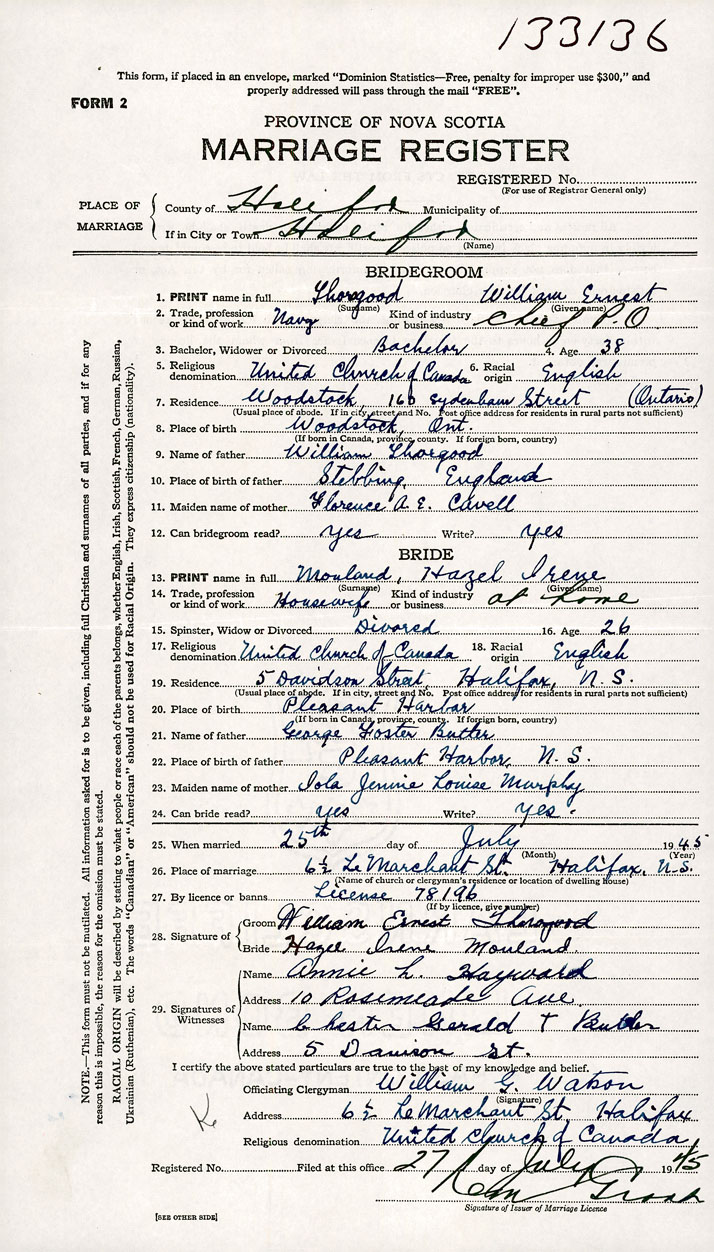 133136
This form, if placed in an envelope, marked "Dominion Statistics—Free, penalty for improper use $300," and
properly addressed will pass through the mail "FREE".
FORM 2
PROVINCE OF NOVA SCOTIA
MARRIAGE REGISTER
REGISTERED No.
(For use of Registrar General only)
PLACE OF MARRIAGE
County of Halifax Municipality of
If in City or Town Halifax
(Name)
BRIDEGROOM
1. PRINT name in full Thorogood William Ernest
(Surname) (Given name)
2. Trade, profession or kind of work Navy Kind of industry or business Chief P.O
3. Bachelor, Widower or Divorced Bachelor 4. Age 38
5. Religious denomination United Church of Canada 6. Racial origin English
7. Residence Woodstock, 160 Sydenham Street (Ontario)
(Usual place of abode. If in city, street and No. Post office address for residents in rural parts not sufficient)
8. Place of birth Woodstock, Ont.
(If born in Canada, province, county. If foreign born, country)
9. Name of father William Thorogood
10. Place of birth of father Stebbing, England
11. Maiden name of mother Florence A. E. Cavell
12. Can bridegroom read? yes Write? yes
BRIDE
13. PRINT name in full Mouland, Hazel Irene
(Surname) (Given name)
14. Trade, profession or kind of work Housewife Kind of industry or business at home
15. Spinster, Widow or Divorced Divored 16. Age 26
17. Religious denomination United Church of Canada 18. Racial origin English
19. Residence 5 Davidson Street, Halifax, N.S.
(Usual place of abode. If in city, street and No. Post office address for residents in rural parts not sufficient)
20. Place of birth Pleasant Harbor
(If born in Canada, province, county. If foreign born, country)
21. Name of father George Foster Butler
22. Place of birth of father Pleasant Harbor, N.S.
23. Maiden name of mother Iola Jennie Louise Murphy
24. Can bride read? yes Write? yes.
25. When married 25th day of July 1945
(Month) (Year)
26. Place of marriage 6½ LeMarchant St. Halifax, N.S.
(Name of church or clergyman's residence or location of dwelling house)
27. By licence or banns License 78196
(If by licence, give number)
28. Signature of
Groom William Ernest Thorogood
Bride Hazel Irene Mouland.
29. Signatures of Witnesses
Name Annie L. Hayward
Address 10 Rosemeade Ave.
Name Chester Gerald T Butler
Address 5 Davison St.
I certify the above stated particulars are true to the best of my knowledge and belief.
Officiating Clergyman William G. Watson
(Signature)
Address 6½ LeMarchant St Halifax
Religious denomination United Church of Canada
Registered No. Filed at this office 27 day of July 1945
Signature of Issuer of Marriage Licence
[SEE OTHER SIDE]
NOTE.—This form must not be mutilated. All information asked for is to be given, including full Christian and surnames of all parties, and if for any
reason this is impossible, the reason for the omission must be stated.
RACIAL ORIGIN will be described by stating to what people or race each of the parents belongs, whether English, Irish, Scottish, French, German, Russian,
Ukrainian (Ruthenian), etc. The words "Canadian" or "American" should not be used for Racial Origin. They express citizenship (nationality).